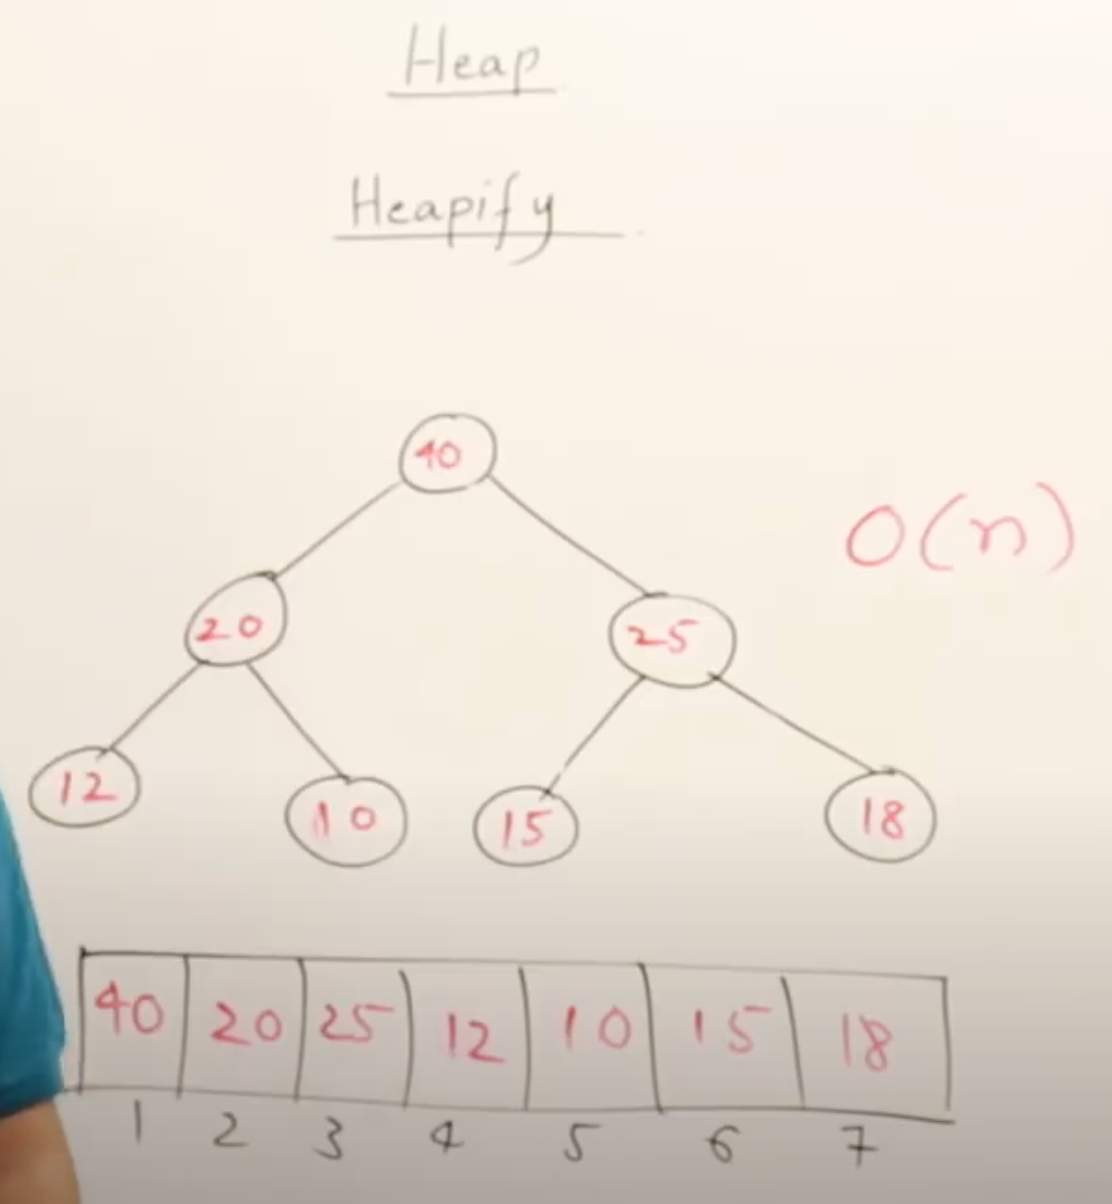 Heap
Heapify
40
O(n)
20 25
12 10 15 18
40 20 25 12 10 15 18
1 2 3 4 5 6 7